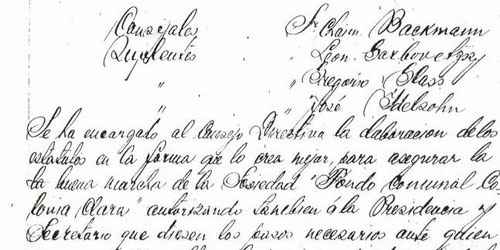 Consejales Sr Chaim. Backmann
Suplentes " León. Garbovetzky
" " Gregorio Glass
" José Idelsohn
Se ha encargado al Consejo Directiva la elaboracion de los
estatutos en la forma que lo crea mejor, para asegurar la
la buena marcha de la Sociedad "Fondo Comunal Co
lonia Clara" autorizando tambien á la Presidencia y
Secretario que diesen los pasos necesarios ante quien